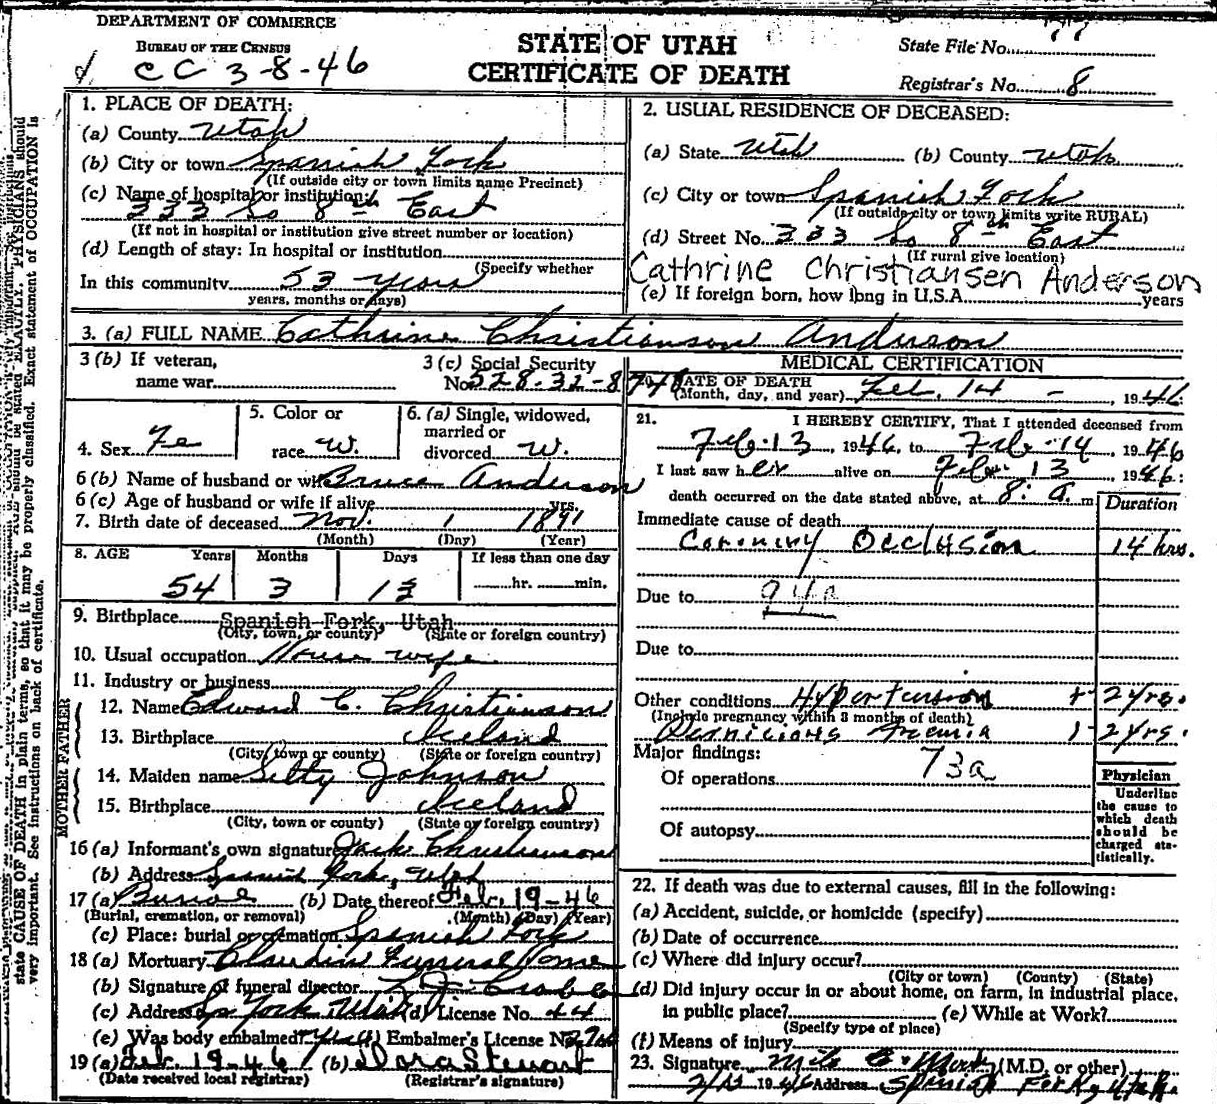 DEPARTMENT OF COMMERCE
BUREAU OF THE CENSUS
CC 3-8-46
STATE OF UTAH
CERTIFICATE OF DEATH
State File No. 77
Registrar's No. 8
1. PLACE OF DEATH:
(a) County Utah
(b) City or town Spanish Fork
(If outside city or town limits name Precinct)
(c) Name of hospital or institution:
333 So 8th East
(If not in hospital or institution give street number or location)
(d) Length of stay: In hospital or institution
(Specify whether
In this community 53 years
years, months or days)
2. USUAL RESIDENCE OF DECEASED:
(a) State Utah (b) County Utah
(c) City or town Spanish Fork
(If outside city or town limits write RURAL)
(d) Street No. 333 So 8th East
(If rural give location)
Cathrine Christiansen Anderson
(e) If foreign born, how long in U.S.A. years
3. (a) FULL NAME Cathrine Christianson Anderson
3 (b) If veteran,
name war
3 (c) Social Security
No. 528-32-8748
4. Sex Fe
5. Color or
race W.
6. (a) Single, widowed,
married or
divorced W.
6 (b) Name of husband or wife Bruce Anderson
6 (c) Age of husband or wife if alive yrs.
7. Birth date of deceased Nov. 1 1891
(Month) (Day) (Year)
8. AGE Years Months Days If less than one day
54 3 13 hr. min.
9. Birthplace Spanish Fork, Utah
(City, town, or county) (State or foreign country)
10. Usual occupation House wife
11. Industry or business
FATHER
12. Name Edward C. Christianson
13. Birthplace Iceland
(City, town or county) (State or foreign country)
MOTHER
14. Maiden name Johnson
15. Birthplace Iceland
(City, town or county) (State or foreign country)
16 (a) Informant's own signature Jack Christianson
(b) Address Spanish Fork, Utah
17 (a) Burial (b) Date thereof Feb. 19-46
(Burial, cremation, or removal) (Month) (Day) (Year)
(c) Place: burial or cremation Spanish Fork
18 (a) Mortuary Claudin Funeral Home
(b) Signature of funeral director
(c) Address Sp Fork Utah (d) License No. 44
(e) Was body embalmed? Yes (f) Embalmer's License No.
19 (a) Feb. 19-46 (b) Dora Stewart
(Date received local registrar) (Registrar's signature)
MEDICAL CERTIFICATION
20. DATE OF DEATH
(Month, day, and year) Feb. 14 - , 1946
21. I HEREBY CERTIFY, That I attended deceased from
Feb. 13, 1946, to Feb. 14, 1946
I last saw her alive on Feb. 13 1946:
death occurred on the date stated above, at 8: a. m
Duration
Immediate cause of death
Coronary Occlusion 14 hrs.
Due to 94a
Due to
Other conditions Hypertension + 2 yrs.
(Include pregnancy within 3 months of death)
Pernicious Anemia 1-2 yrs.
Major findings: 73a
Of operations
Of autopsy
Physician
Underline
the cause to
which death
should be
charged sta-
tistically.
22. If death was due to external causes, fill in the following:
(a) Accident, suicide, or homicide (specify)
(b) Date of occurrence
(c) Where did injury occur?
(City or town) (County) (State)
(d) Did injury occur in or about home, on farm, in industrial place,
in public place? (e) While at Work?
(Specify type of place)
(f) Means of injury
23. Signature (M.D. or other)
1946 Address Spanish Fork, Utah
state CAUSE OF DEATH in plain terms, so that it may be properly classified. Exact statement of OCCUPATION is
very important. See instructions on back of certificate.